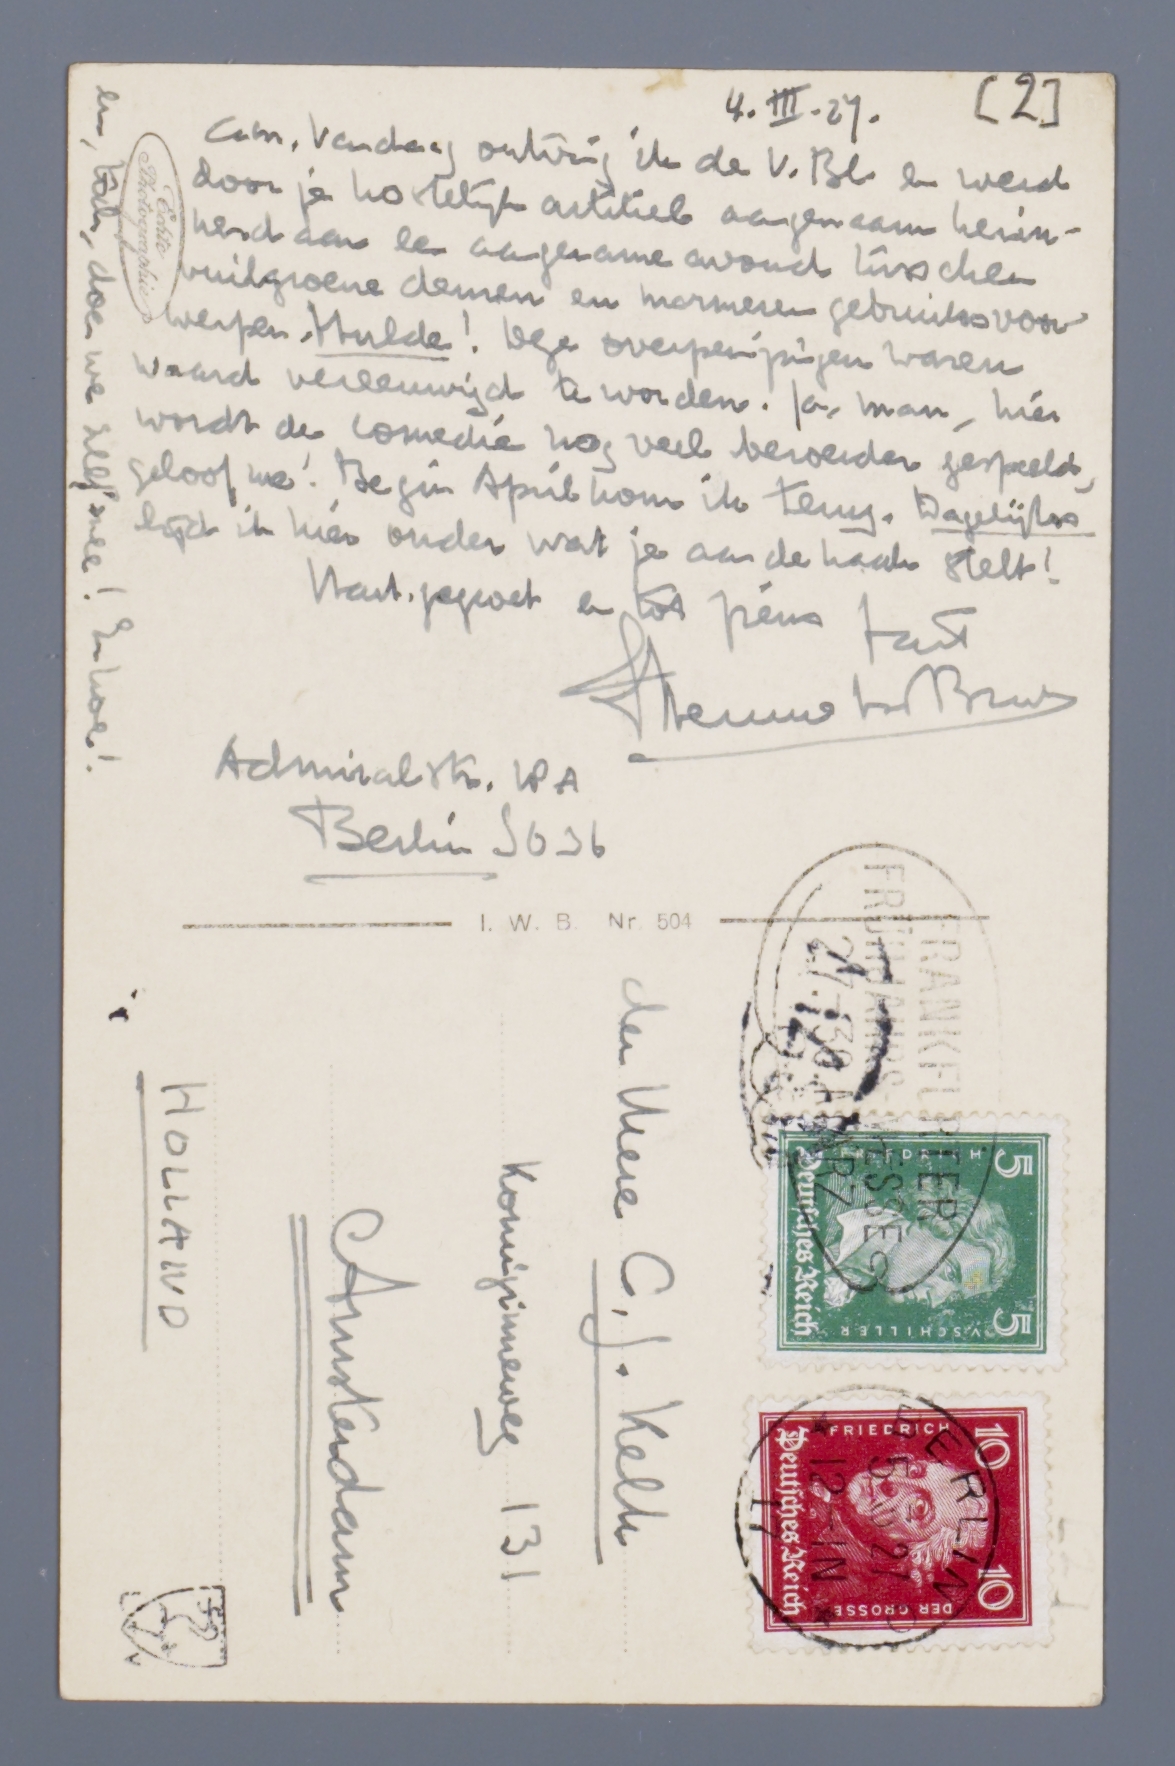 4. III. 27. [2]
Cam. Vandaag ontving ik de V. Bl. en werd
door je kostelijk artikel aangenaam herin-
nerd aan een aangename avond tusschen
vuilgroene dennen en marmeren gebruiksvoor-
werpen. Hulde! overpeinzingen waren
waard vereeuwigd te worden. Ja, man, hier
wordt de comedie nog veel beroerder gespeeld,
geloof me! Begin April kom ik terug. Dagelijks
lijd ik hier onder wat je aan de kaak stelt!
Hart. gegroet en tot ziens
Menno ter Braak
en, bah, doen we zelf mee! En hoe!
Echte
Photographie
Admiralstr. 18A
Berlin SO 36
I. W. B. Nr. 504
den Heere C. J. Kelk
Koninginneweg 131
Amsterdam
HOLLAND
FRANKFURTER
FRÜHJAHRS-MESSE
27.-30. MÄRZ
5 FRIEDRICH V. SCHILLER 5
Deutsches Reich
10 FRIEDRICH DER GROSSE 10
Deutsches Reich
BERLIN
5.3.27
12-1N